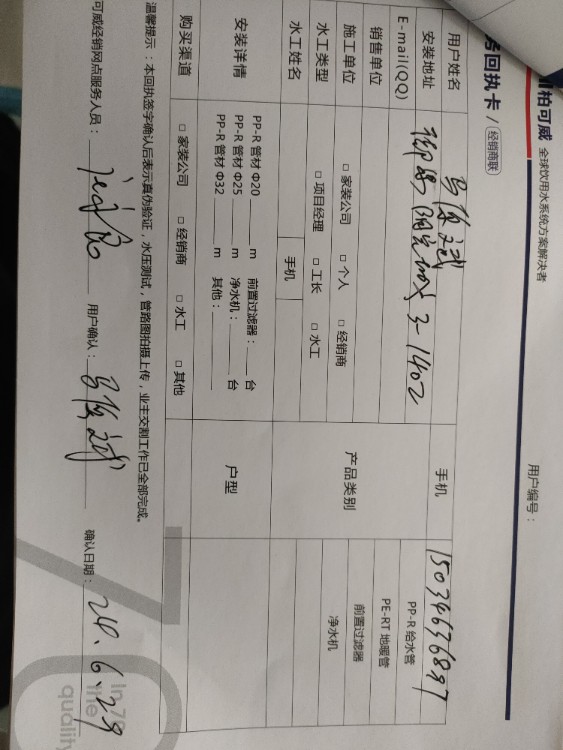 柏可威 全球饮用水系统方案解决者
务回执卡 / 经销商联
用户编号：
用户姓名 马俊斌 手机 15034636897
安装地址 御馨阳光城 3-1402
E-mail(QQ)
销售单位
施工单位 □ 家装公司 □ 个人 □ 经销商
水工类型 □ 项目经理 □ 工长 □ 水工
水工姓名 手机
产品类别
PP-R 给水管
PE-RT 地暖管
前置过滤器
净水机
安装详情
PP-R 管材 Φ20 m 前置过滤器： 台
PP-R 管材 Φ25 m 净水机： 台
PP-R 管材 Φ32 m 其他：
户型
购买渠道 □ 家装公司 □ 经销商 □ 水工 □ 其他
温馨提示：本回执签字确认后表示真伪验证，水压测试，管路图拍摄上传，业主交割工作已全部完成。
可威经销网点服务人员： 用户确认： 马俊斌 确认日期： 24.6.29
In 70
line
quality